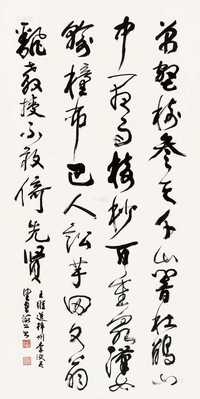 萬壑樹參天千山響杜鵑山
中一夜雨樹杪百重泉漢女
輸橦布巴人訟芋田文翁
翻教授不敢倚先賢
王維送梓州李使君